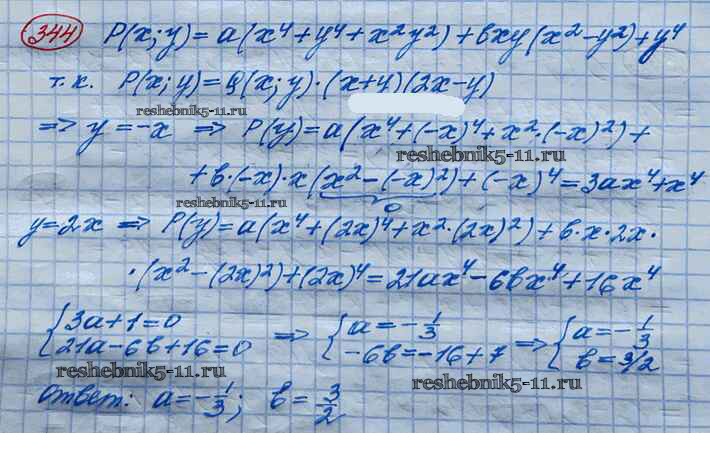 344 P(x;y)=a(x⁴+y⁴+x²y²)+bxy(x²-y²)+y⁴
т.к. P(x;y)=Q(x;y)·(x+y)(2x-y)
reshebnik5-11.ru
=> y=-x => P(y)=a(x⁴+(-x)⁴+x²·(-x)²)+
reshebnik5-11.ru
+b·(-x)·x(x²-(-x)²)+(-x)⁴=3ax⁴+x⁴
0
reshebnik5-11.ru
y=2x => P(y)=a(x⁴+(2x)⁴+x²·(2x)²)+b·x·2x·
·(x²-(2x)²)+(2x)⁴=21ax⁴-6bx⁴+16x⁴
{3a+1=0 => {a=-1/3 => {a=-1/3
21a-6b+16=0 -6b=-16+7 b=3/2
reshebnik5-11.ru reshebnik5-11.ru
Ответ: a=-1/3; b=3/2